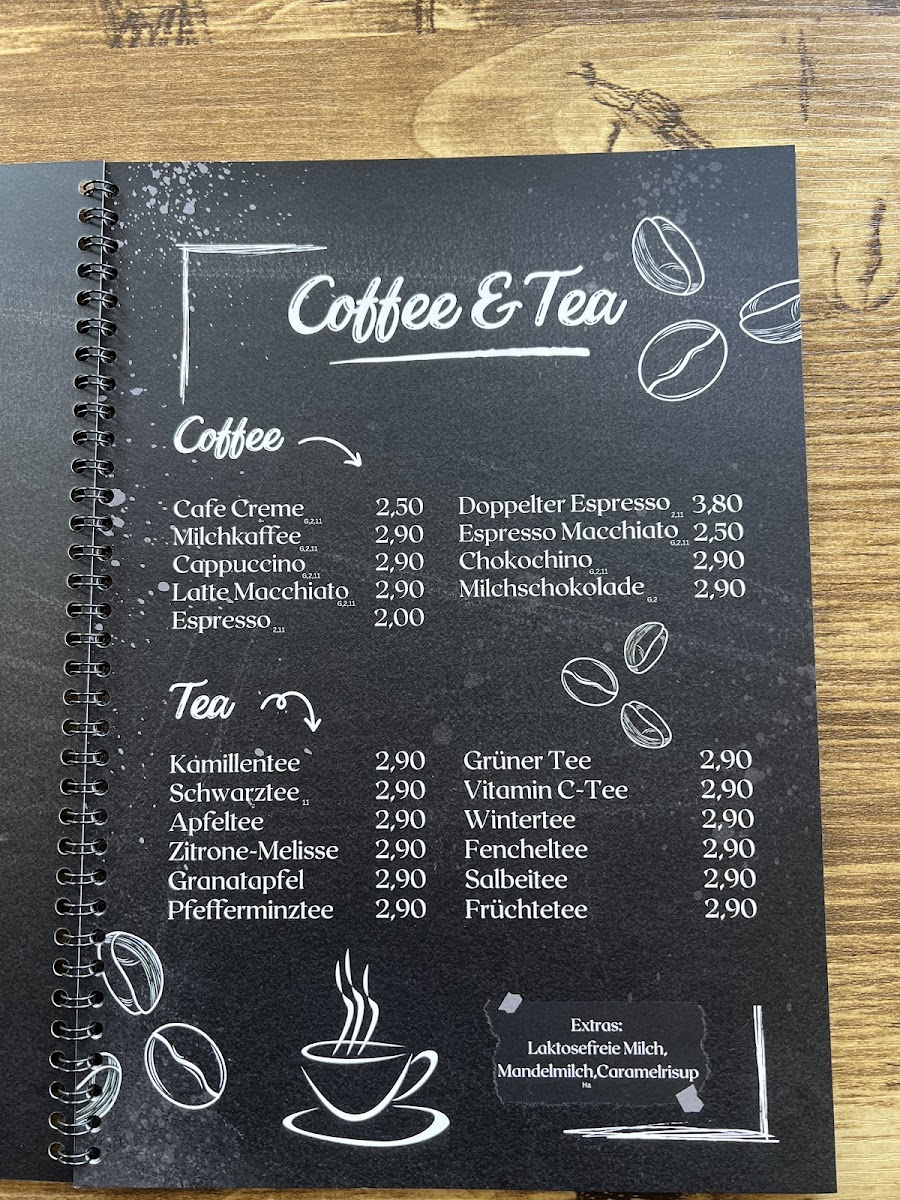 Coffee & Tea
Coffee
Cafe Creme G,2,11 2,50
Milchkaffee G,2,11 2,90
Cappuccino G,2,11 2,90
Latte Macchiato G,2,11 2,90
Espresso 2,11 2,00
Doppelter Espresso 2,11 3,80
Espresso Macchiato G,2,11 2,50
Chokochino G,2,11 2,90
Milchschokolade G,2 2,90
Tea
Kamillentee 2,90
Schwarztee 11 2,90
Apfeltee 2,90
Zitrone-Melisse 2,90
Granatapfel 2,90
Pfefferminztee 2,90
Grüner Tee 2,90
Vitamin C-Tee 2,90
Wintertee 2,90
Fencheltee 2,90
Salbeitee 2,90
Früchtetee 2,90
Extras:
Laktosefreie Milch,
Mandelmilch,Caramelrisup
Ha